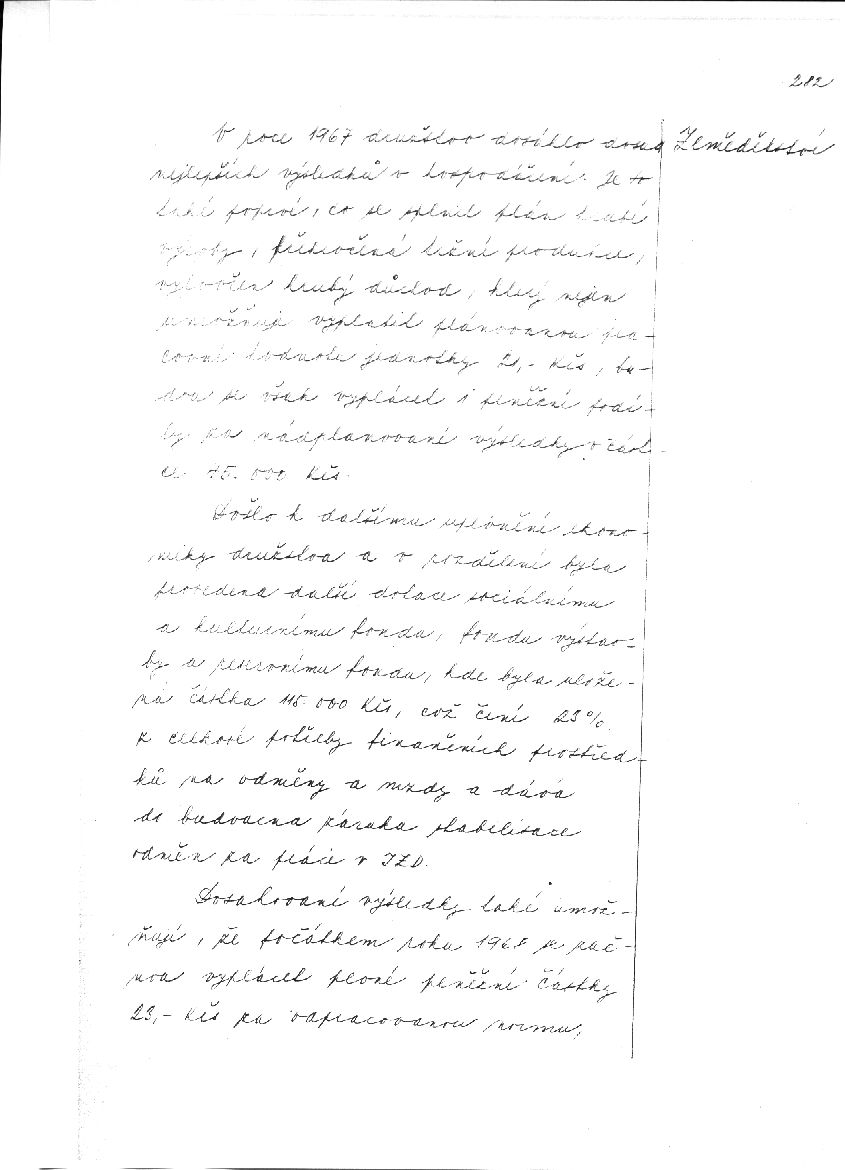 282
V roce 1967 družstvo dosáhlo dosud
Zemědělství
nejlepších výsledků v hospodaření. Je to
také poprvé, co se splnil plán hrubé
výroby, předepsaná tržní produkce,
vytvořen hrubý důchod, který nejen
umožňuje vyplatit plánovanou pra-
covní hodnotu jednotky 21,- Kčs, bu-
dou se však vyplácet i peněžní podí-
ly za nadplánované výsledky v část-
ce 75.000 Kčs.
Došlo k dalšímu upevnění ekono-
miky družstva a v rozdělení byla
provedena další dotace sociálnímu
a kulturnímu fondu, fondu výstav-
by a reservnímu fondu, kde byla ulože-
ná částka 115.000 Kčs, což činí 23%
z celkové potřeby finančních prostřed-
ků na odměny a mzdy a dává
do budoucna záruku stabilisace
odměn za práci v JZD.
Dosahované výsledky také umož-
ňují, že počátkem roku 1968 se zač-
nou vyplácet pevné peněžní částky
23,- Kčs za odpracovanou normu,